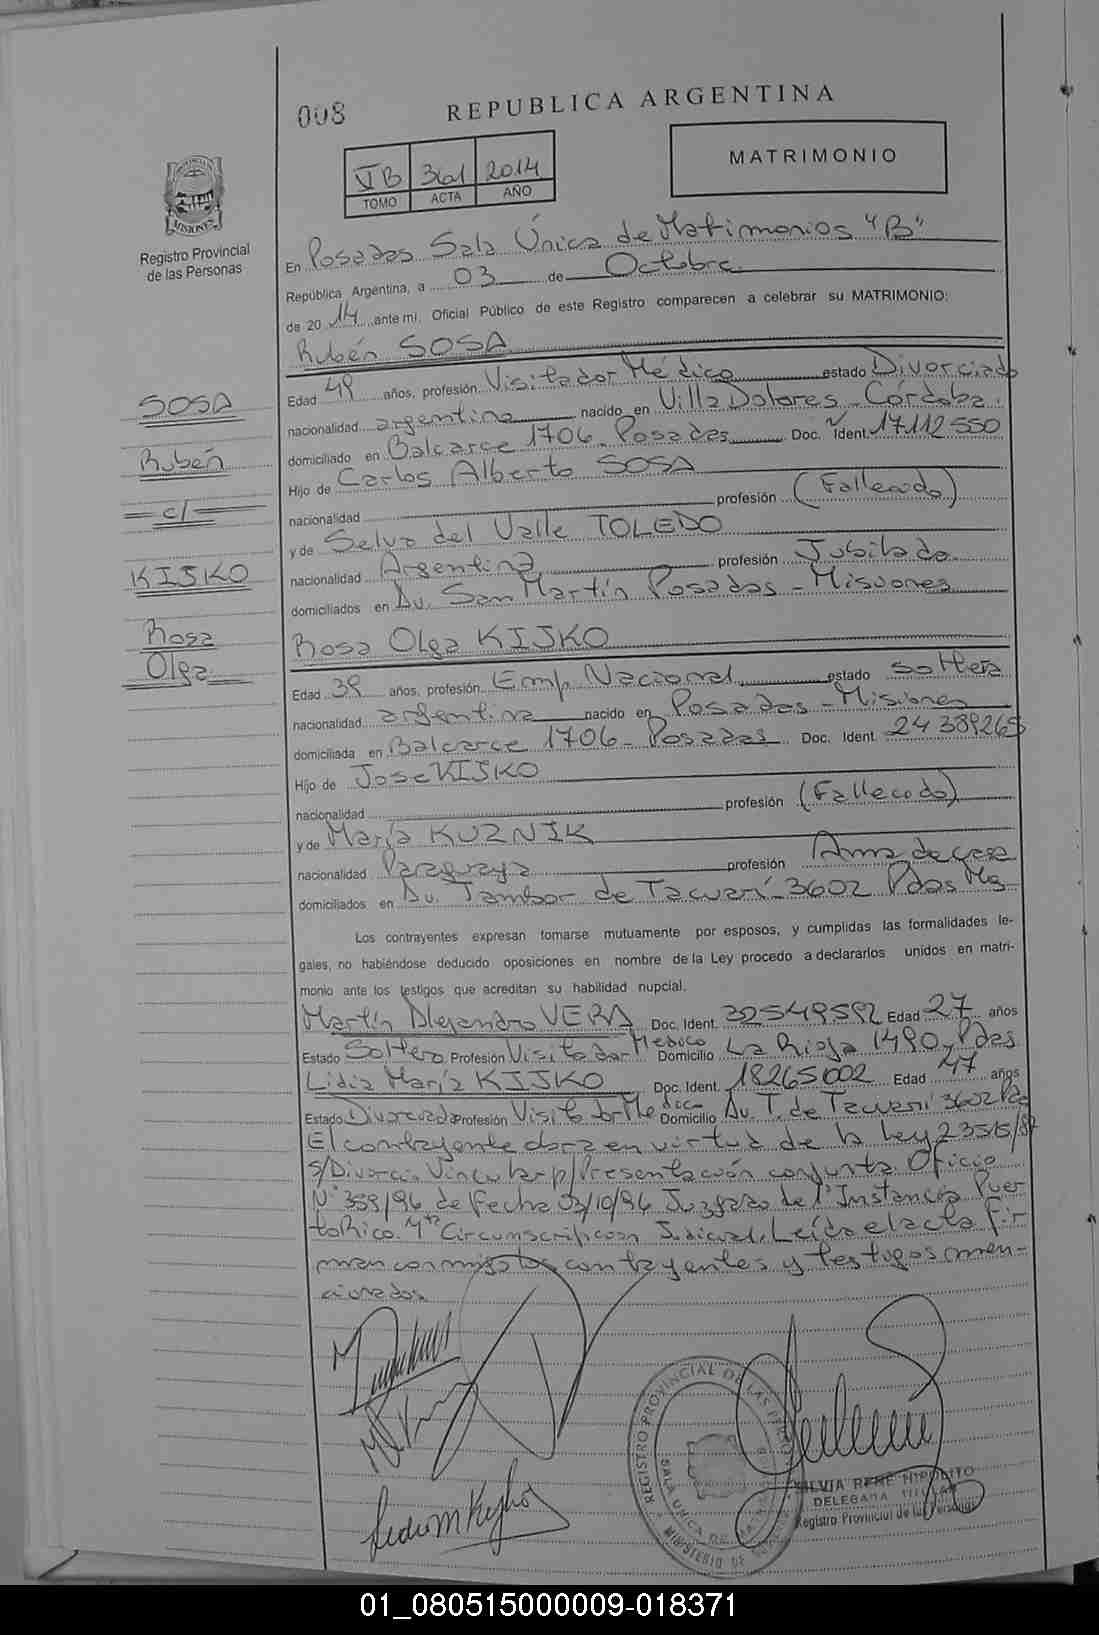 008
REPUBLICA ARGENTINA
VB 361 2014
TOMO ACTA AÑO
MATRIMONIO
PROVINCIA DE
MISIONES
Registro Provincial
de las Personas
En Posadas Sala Única de Matrimonios "B"
República Argentina, a 03 de Octubre
de 20 14 ante mi, Oficial Público de este Registro comparecen a celebrar su MATRIMONIO:
Rubén SOSA
Edad 49 años, profesión Visitador Médico estado Divorciado
nacionalidad argentina nacido en Villa Dolores - Córdoba
domiciliado en Balcarce 1706 - Posadas Doc. Ident. 17112550
Hijo de Carlos Alberto SOSA
nacionalidad profesión (Fallecido)
y de Selva del Valle TOLEDO
nacionalidad Argentina profesión Jubilada
domiciliados en Av. San Martín Posadas - Misiones
Rosa Olga KISKO
Edad 39 años, profesión Emp. Nacional estado soltera
nacionalidad argentina nacido en Posadas - Misiones
domiciliada en Balcarce 1706 - Posadas Doc. Ident. 24389265
Hijo de Jose KISKO
nacionalidad profesión (Fallecido)
y de María KUZNIK
nacionalidad Paraguaya profesión Ama de casa
domiciliados en Av. Tambor de Tacuarí - 3602 Pdas Ms
Los contrayentes expresan tomarse mutuamente por esposos, y cumplidas las formalidades le-
gales, no habiéndose deducido oposiciones en nombre de la Ley procedo a declararlos unidos en matri-
monio ante los testigos que acreditan su habilidad nupcial.
Martín Alejandro VERA Doc. Ident. 32549592 Edad 27 años
Estado Soltero Profesión Visitador Médico Domicilio La Rioja 1490 - Pdas
Lidia María KISKO Doc. Ident. 18265002 Edad 47 años
Estado Divorciada Profesión Visitador Médica Domicilio Av. T. de Tacuarí 3602 Pdas
El contrayente obra en virtud de la Ley 23515/87
s/Divorcio Vincular p/Presentación conjunta Oficio
N° 359/96 de fecha 03/10/96 Juzgado de 1° Instancia Puer
to Rico 4ta Circunscripción Judicial. Leída el acta fir
man conmigo los contrayentes y testigos men-
cionados
SOSA
Rubén
c/
KISKO
Rosa
Olga
REGISTRO PROVINCIAL DE LAS PERSONAS
SALA UNICA DE
MINISTERIO DE
SILVIA RENE HIPOLITO
DELEGADA TITULAR
Registro Provincial de las Personas
01_080515000009-018371